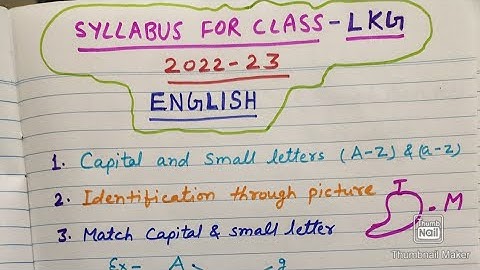 SYLLABUS FOR CLASS-LKG
2022-23
ENGLISH
1. Capital and small letters (A-Z) & (a-z)
2. Identification through picture
3. Match Capital & small letter
I - M
Thumb
Nail
Thumbnail Maker
Ex- A g